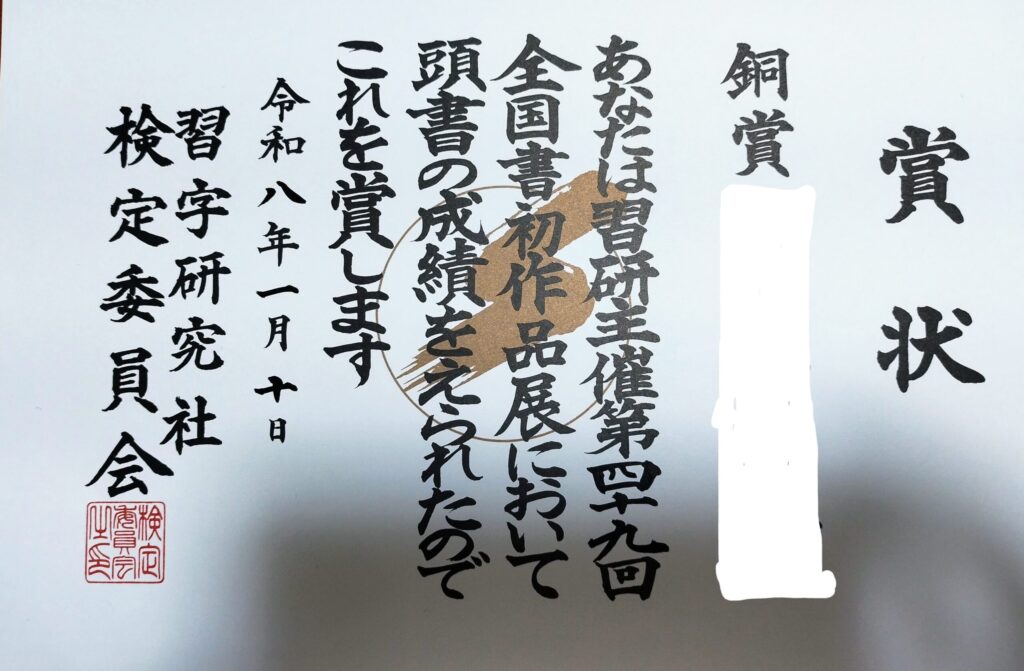 賞状
銅賞
あなたは習研主催第四十九回
全国書初作品展において
頭書の成績をえられたので
これを賞します
令和八年一月十日
習字研究社
検定委員会
検定
委員会
之印